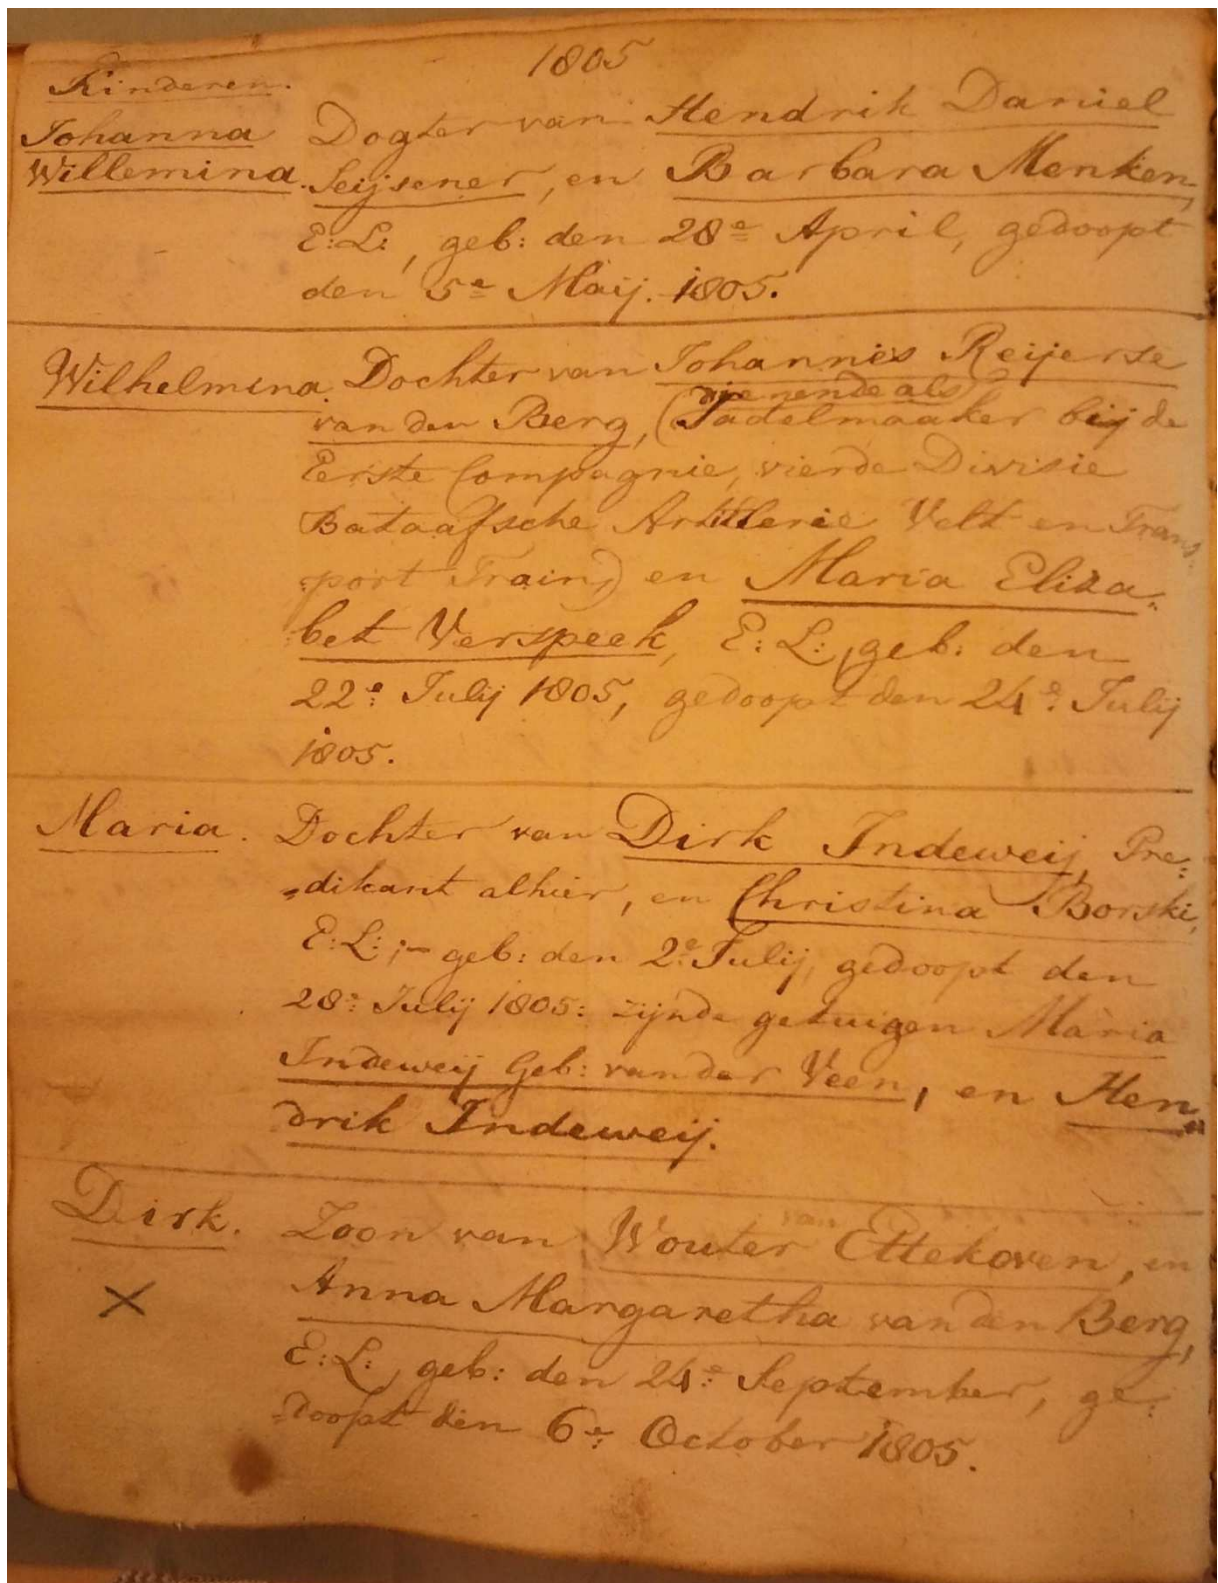 1805
Kinderen.
Johanna
Willemina.
Dogter van Hendrik Daniel
Seijsener, en Barbara Menken,
E:L:, geb: den 28e April, gedoopt
den 5e Maij. 1805.
Wilhelmina. Dochter van Johannes Reijerse
dienende als
van den Berg, (Sadelmaaker bij de
Eerste Compagnie, vierde Divisie
Bataafsche Artillerie Velt en Trans
port Train) en Maria Eliza-
bet Verspeek, E:L:, geb: den
22e: Julij 1805, gedoopt den 24e: Julij
1805.
Maria. Dochter van Dirk Indeweij, Pre:
=dikant alhier, en Christina Borski,
E:L:;- geb: den 2e: Julij, gedoopt den
28e: Julij 1805: zijnde getuigen Maria
Indeweij Geb: van der Veen, en Hen„
drik Indeweij.
van
Dirk. Zoon van Wouter Ettekoven, en
X
Anna Margaretha van den Berg,
E:L:, geb: den 24e: September, ge:
=doopt den 6e: October 1805.